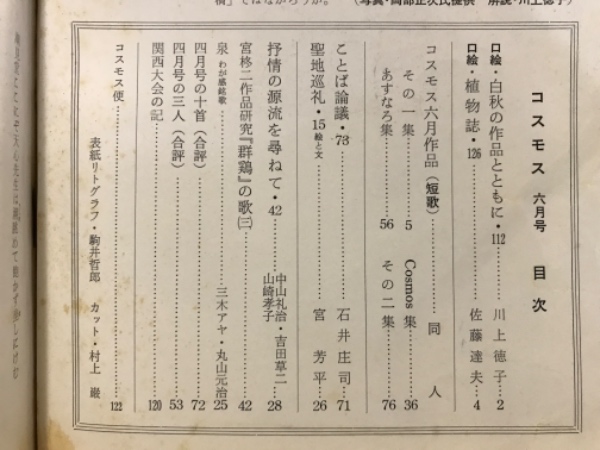 楨」ではなからうか。 (写真・岡部正次氏提供 解説・川上徳子)
コスモス 六月号 目次
口絵・白秋の作品とともに・112……川上徳子…2
口絵・植物誌・126……佐藤達夫…4
コスモス六月作品(短歌)……同人
その一集……5 Cosmos集……36
あすなろ集……56 その二集……76
ことば論議・73……石井庄司…71
聖地巡礼・15絵と文……宮芳平…26
抒情の源流を尋ねて・42……中山礼治・吉田草二 山崎孝子…28
宮柊二作品研究『群鶏』の歌(三)……42
泉 わが感銘歌……三木アヤ・丸山元治…25
四月号の十首(合評)……72
四月号の三人(合評)……53
関西大会の記……120
コスモス便……122
表紙リトグラフ・駒井哲郎 カット・村上巌